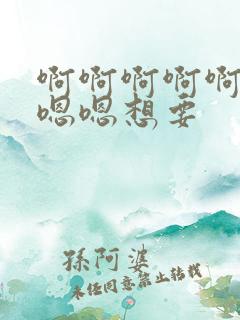 啊啊啊啊啊
嗯嗯想要
孫阿婆
未經同意禁止轉載